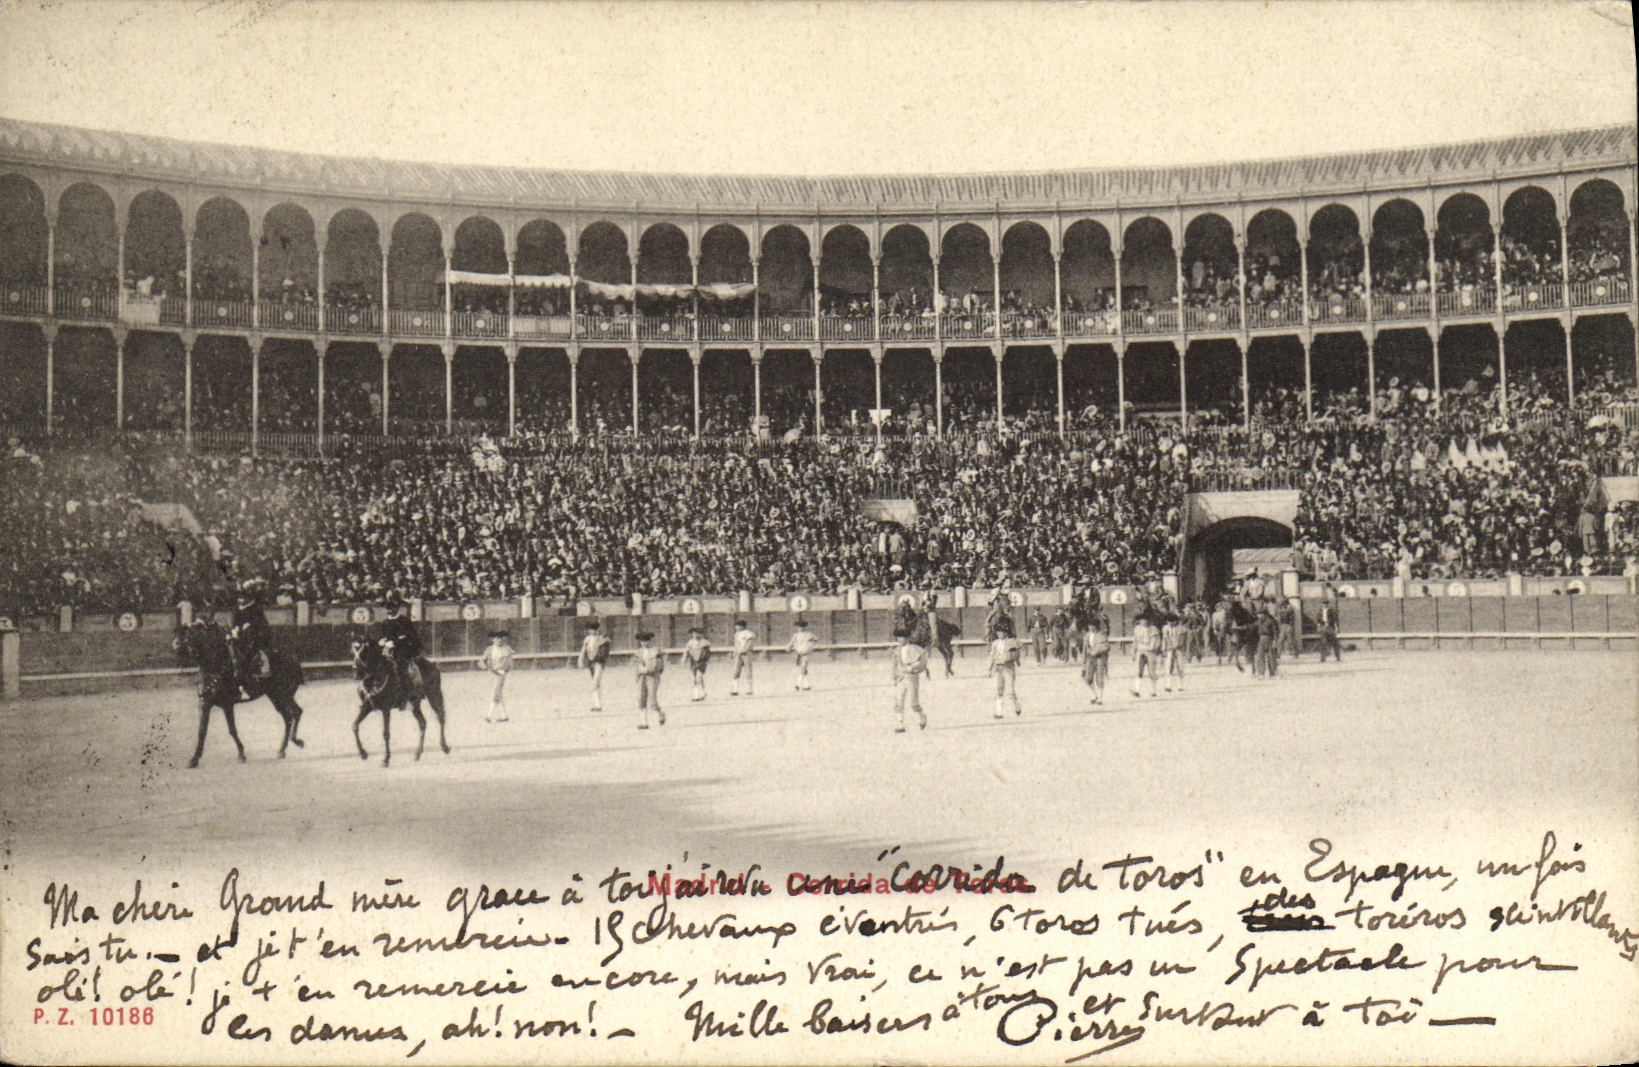 3 3 3 4 4 4 4
Madrid - Corrida de Toros
Ma chère Grand mère grace à toi j'ai vu une "Corrida de Toros" en Espagne, un fois
sais tu. — et je t'en remercie - 15 chevaux éventrés, 6 toros tués, des toréros scintillants
olé! olé! je t'en remercie encore, mais vrai, ce n'est pas un Spectacle pour
les dames, ah! non! — Mille baisers à tous et surtout à toi —
Pierre
P. Z. 10186